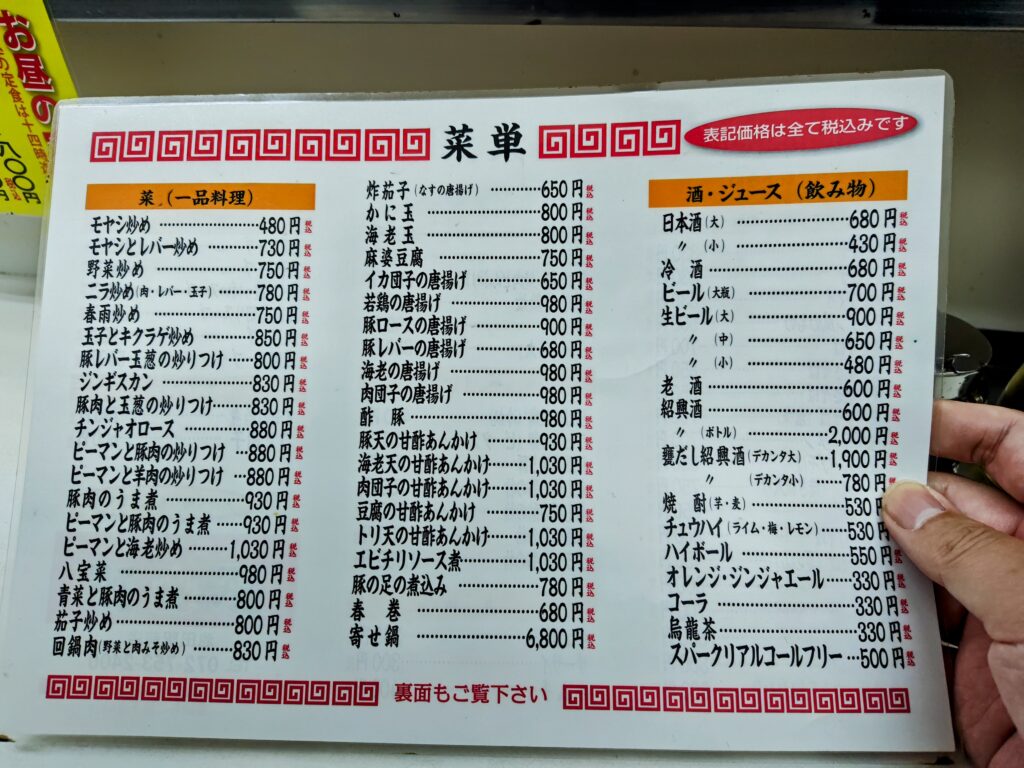 お昼の
の定食は十四時
700円
菜単
表記価格は全て税込みです
菜（一品料理）
モヤシ炒め…………480円税込
モヤシとレバー炒め………730円税込
野菜炒め…………750円税込
ニラ炒め（肉・レバー・玉子）……780円税込
春雨炒め…………750円税込
玉子とキクラゲ炒め………850円税込
豚レバー玉葱の炒りつけ……800円税込
ジンギスカン…………830円税込
豚肉と玉葱の炒りつけ……830円税込
チンジャオロース…………880円税込
ピーマンと豚肉の炒りつけ…880円税込
ピーマンと羊肉の炒りつけ…880円税込
豚肉のうま煮…………930円税込
ピーマンと豚肉のうま煮……930円税込
ピーマンと海老炒め………1,030円税込
八宝菜…………980円税込
青菜と豚肉のうま煮………800円税込
茄子炒め…………800円税込
回鍋肉（野菜と肉みそ炒め）……830円税込
炸茄子（なすの唐揚げ）…………650円税込
かに玉…………800円税込
海老玉…………800円税込
麻婆豆腐…………750円税込
イカ団子の唐揚げ…………650円税込
若鶏の唐揚げ…………980円税込
豚ロースの唐揚げ…………900円税込
豚レバーの唐揚げ…………680円税込
海老の唐揚げ…………980円税込
肉団子の唐揚げ…………980円税込
酢豚…………980円税込
豚天の甘酢あんかけ………930円税込
海老天の甘酢あんかけ……1,030円税込
肉団子の甘酢あんかけ……1,030円税込
豆腐の甘酢あんかけ………750円税込
トリ天の甘酢あんかけ……1,030円税込
エビチリソース煮…………1,030円税込
豚の足の煮込み…………780円税込
春巻…………680円税込
寄せ鍋…………6,800円税込
酒・ジュース（飲み物）
日本酒（大）…………680円税込
〃（小）…………430円税込
冷酒…………680円税込
ビール（大瓶）…………700円税込
生ビール（大）…………900円税込
〃（中）…………650円税込
〃（小）…………480円税込
老酒…………600円税込
紹興酒…………600円税込
〃（ボトル）…………2,000円税込
甕だし紹興酒（デカンタ大）…1,900円税込
〃（デカンタ小）……780円税込
焼酎（芋・麦）…………530円
チュウハイ（ライム・梅・レモン）……530円
ハイボール…………550円税込
オレンジ・ジンジャエール……330円税込
コーラ…………330円税込
烏龍茶…………330円税込
スパークリアルコールフリー…500円税込
裏面もご覧下さい